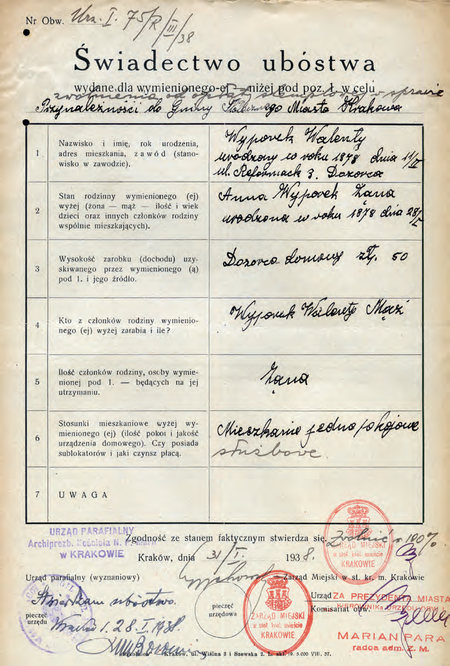 Nr Obw. Urz. I. 75/R/III/38
Świadectwo ubóstwa
wydane dla wymienionego-ej niżej pod poz. 1. w celu
zwolnienia od opłat w sprawie
Przynależności do Gminy Stołecznego Miasta Krakowa
1
Nazwisko i imię, rok urodzenia,
adres mieszkania, zawód (stano-
wisko w zawodzie).
Wyporek Walenty
urodzony w roku 1878 dnia 14/II
ul. Reformacka 3. Dozorca
2
Stan rodzinny wymienionego (ej)
wyżej (żona — mąż — ilość i wiek
dzieci oraz innych członków rodziny
wspólnie mieszkających).
Anna Wyporek Żana
urodzona w roku 1878 dnia 28/I
3
Wysokość zarobku (dochodu) uzy-
skiwanego przez wymienionego (ą)
pod 1. i jego źródło.
Dozorca domowy zł. 50
4
Kto z członków rodziny wymienio-
nego (ej) wyżej zarabia i ile?
Wyporek Walenty Mąż
5
Ilość członków rodziny, osoby wymie-
nionej pod 1. — będących na jej
utrzymaniu.
Żana
6
Stosunki mieszkaniowe wyżej wy-
mienionego (ej) (ilość pokoi i jakość
urządzenia domowego). Czy posiada
sublokatorów i jaki czynsz płacą.
Mieszkanie jedno pokojowe
służbowe
7
UWAGA
URZĄD PARAFIALNY
Archiprezb. Kościoła N. P. Marii
w KRAKOWIE
Zgodność ze stanem faktycznym stwierdza się.
Zwolnić 100%
Kraków, dnia 31/I. 1938.
URZĄD MIEJSKI
w stoł. król. mieście
KRAKOWIE
Urząd parafialny (wyznaniowy)
Zarząd Miejski w st. kr. m. Krakowie
Stwierdzam ubóstwo.
28. I. 1938.
pieczęć
urzędu
pieczęć
urzędu
ZARZĄD MIEJSKI
w stoł. król. mieście
KRAKOWIE
Urząd
ZA PREZYDENTA MIASTA
KIEROWNIK URZĘDU OBW.
Komisariat obw.
MARIAN PARA
radca adm. Z. M.